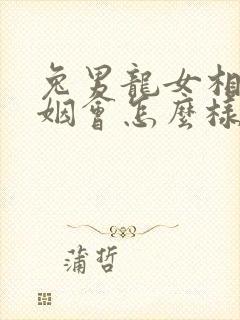 兔男龍女相
姻會怎麼樣
蒲哲